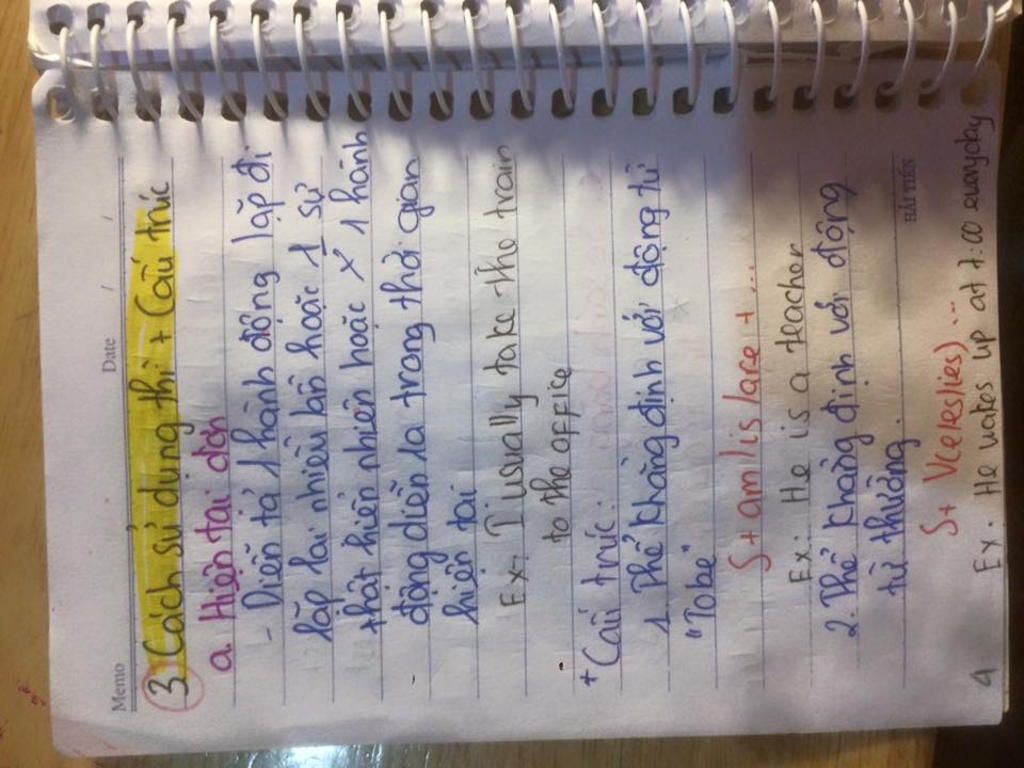 Memo Date / /
3 Cách sử dụng thì + Cấu trúc
a. Hiện tại đơn
- Diễn tả 1 hành động lặp đi
lặp lại nhiều lần hoặc 1 sự
thật hiển nhiên hoặc 1 hành
động diễn ra trong thời gian
hiện tại
Ex: I usually take the train
to the office
+ Cấu trúc:
1. Thể khẳng định với động từ
"Tobe"
S + am/is/are + ...
Ex: He is a teacher
2. Thể khẳng định với động
từ thường.
HẢI TIẾN
S + V(e/es/ies) ...
4 Ex: He wakes up at 7:00 everyday